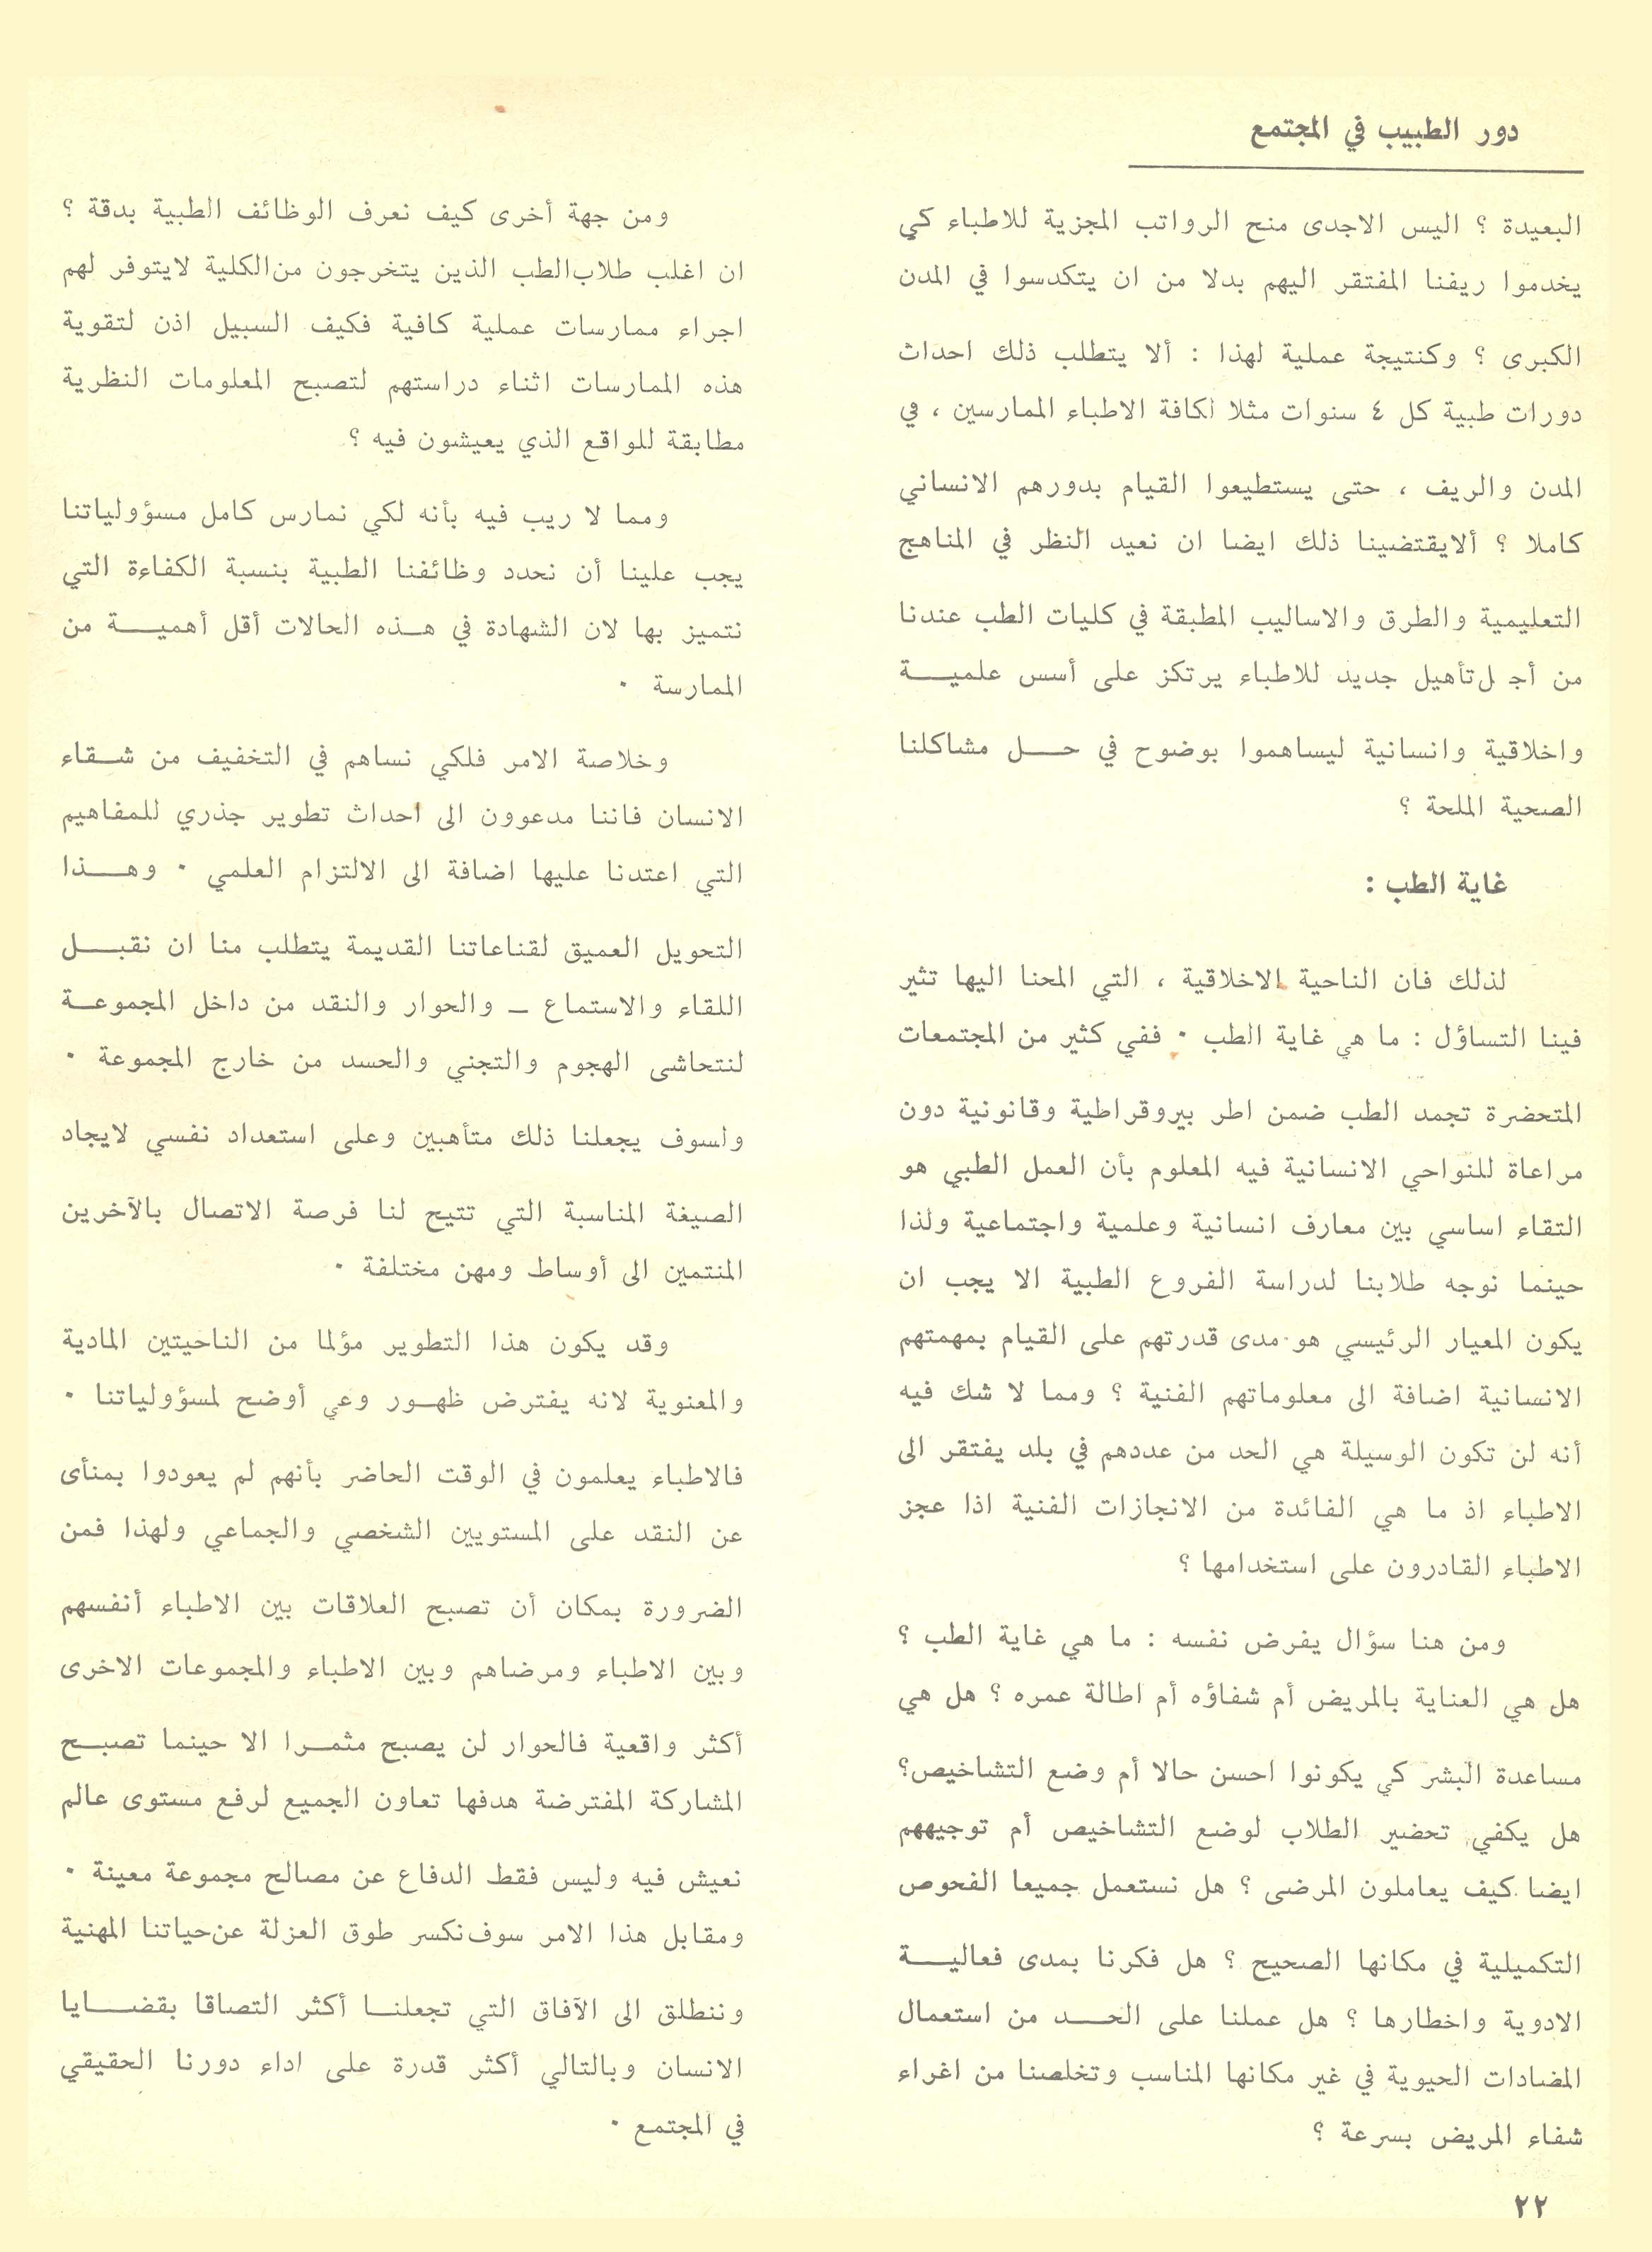 دور الطبيب في المجتمع
البعيدة ؟ اليس الاجدى منح الرواتب المجزية للاطباء كي
يخدموا ريفنا المفتقر اليهم بدلا من ان يتكدسوا في المدن
الكبرى ؟ وكنتيجة عملية لهذا : ألا يتطلب ذلك احداث
دورات طبية كل ٤ سنوات مثلا لكافة الاطباء الممارسين ، في
المدن والريف ، حتى يستطيعوا القيام بدورهم الانساني
كاملا ؟ ألايقتضينا ذلك ايضا ان نعيد النظر في المناهج
التعليمية والطرق والاساليب المطبقة في كليات الطب عندنا
من أجـ ل تأهيل جديد للاطباء يرتكز على أسس علميـــة
واخلاقية وانسانية ليساهموا بوضوح في حـــل مشاكلنا
الصحية الملحة ؟
غاية الطب :
لذلك فان الناحية الاخلاقية ، التي المحنا اليها تثير
فينا التساؤل : ما هي غاية الطب ٠ ففي كثير من المجتمعات
المتحضرة تجمد الطب ضمن اطر بيروقراطية وقانونية دون
مراعاة للنواحي الانسانية فيه المعلوم بأن العمل الطبي هو
التقاء اساسي بين معارف انسانية وعلمية واجتماعية ولذا
حينما نوجه طلابنا لدراسة الفروع الطبية الا يجب ان
يكون المعيار الرئيسي هو مدى قدرتهم على القيام بمهمتهم
الانسانية اضافة الى معلوماتهم الفنية ؟ ومما لا شك فيه
أنه لن تكون الوسيلة هي الحد من عددهم في بلد يفتقر الى
الاطباء اذ ما هي الفائدة من الانجازات الفنية اذا عجز
الاطباء القادرون على استخدامها ؟
ومن هنا سؤال يفرض نفسه : ما هي غاية الطب ؟
هل هي العناية بالمريض أم شفاؤه أم اطالة عمره ؟ هل هي
مساعدة البشر كي يكونوا احسن حالا أم وضع التشاخيص؟
هل يكفي تحضير الطلاب لوضع التشاخيص أم توجيههم
ايضا كيف يعاملون المرضى ؟ هل نستعمل جميعا الفحوص
التكميلية في مكانها الصحيح ؟ هل فكرنا بمدى فعاليـــة
الادوية واخطارها ؟ هل عملنا على الحـــد من استعمال
المضادات الحيوية في غير مكانها المناسب وتخلصنا من اغراء
شفاء المريض بسرعة ؟
ومن جهة أخرى كيف نعرف الوظائف الطبية بدقة ؟
ان اغلب طلاب الطب الذين يتخرجون من الكلية لايتوفر لهم
اجراء ممارسات عملية كافية فكيف السبيل اذن لتقوية
هذه الممارسات اثناء دراستهم لتصبح المعلومات النظرية
مطابقة للواقع الذي يعيشون فيه ؟
ومما لا ريب فيه بأنه لكي نمارس كامل مسؤولياتنا
يجب علينا أن نحدد وظائفنا الطبية بنسبة الكفاءة التي
نتميز بها لان الشهادة في هـــذه الحالات أقل أهميـــة من
الممارسة ٠
وخلاصة الامر فلكي نساهم في التخفيف من شــقاء
الانسان فاننا مدعوون الى احداث تطوير جذري للمفاهيم
التي اعتدنا عليها اضافة الى الالتزام العلمي ٠ وهـــذا
التحويل العميق لقناعاتنا القديمة يتطلب منا ان نقبـــل
اللقاء والاستماع ـ والحوار والنقد من داخل المجموعــة
لنتحاشى الهجوم والتجني والحسد من خارج المجموعة ٠
ولسوف يجعلنا ذلك متأهبين وعلى استعداد نفسي لايجاد
الصيغة المناسبة التي تتيح لنا فرصة الاتصال بالآخرين
المنتمين الى أوساط ومهن مختلفة ٠
وقد يكون هذا التطوير مؤلما من الناحيتين المادية
والمعنوية لانه يفترض ظهــور وعي أوضح لمسؤولياتنا ٠
فالاطباء يعلمون في الوقت الحاضر بأنهم لم يعودوا بمنأى
عن النقد على المستويين الشخصي والجماعي ولهذا فمن
الضرورة بمكان أن تصبح العلاقات بين الاطباء أنفسهم
وبين الاطباء ومرضاهم وبين الاطباء والمجموعات الاخرى
أكثر واقعية فالحوار لن يصبح مثمــرا الا حينما تصبــح
المشاركة المفترضة هدفها تعاون الجميع لرفع مستوى عالم
نعيش فيه وليس فقط الدفاع عن مصالح مجموعة معينة ٠
ومقابل هذا الامر سوف نكسر طوق العزلة عن حياتنا المهنية
وننطلق الى الآفاق التي تجعلنــا أكثر التصاقا بقضـــايا
الانسان وبالتالي أكثر قدرة على اداء دورنا الحقيقي
في المجتمع ٠
٢٢